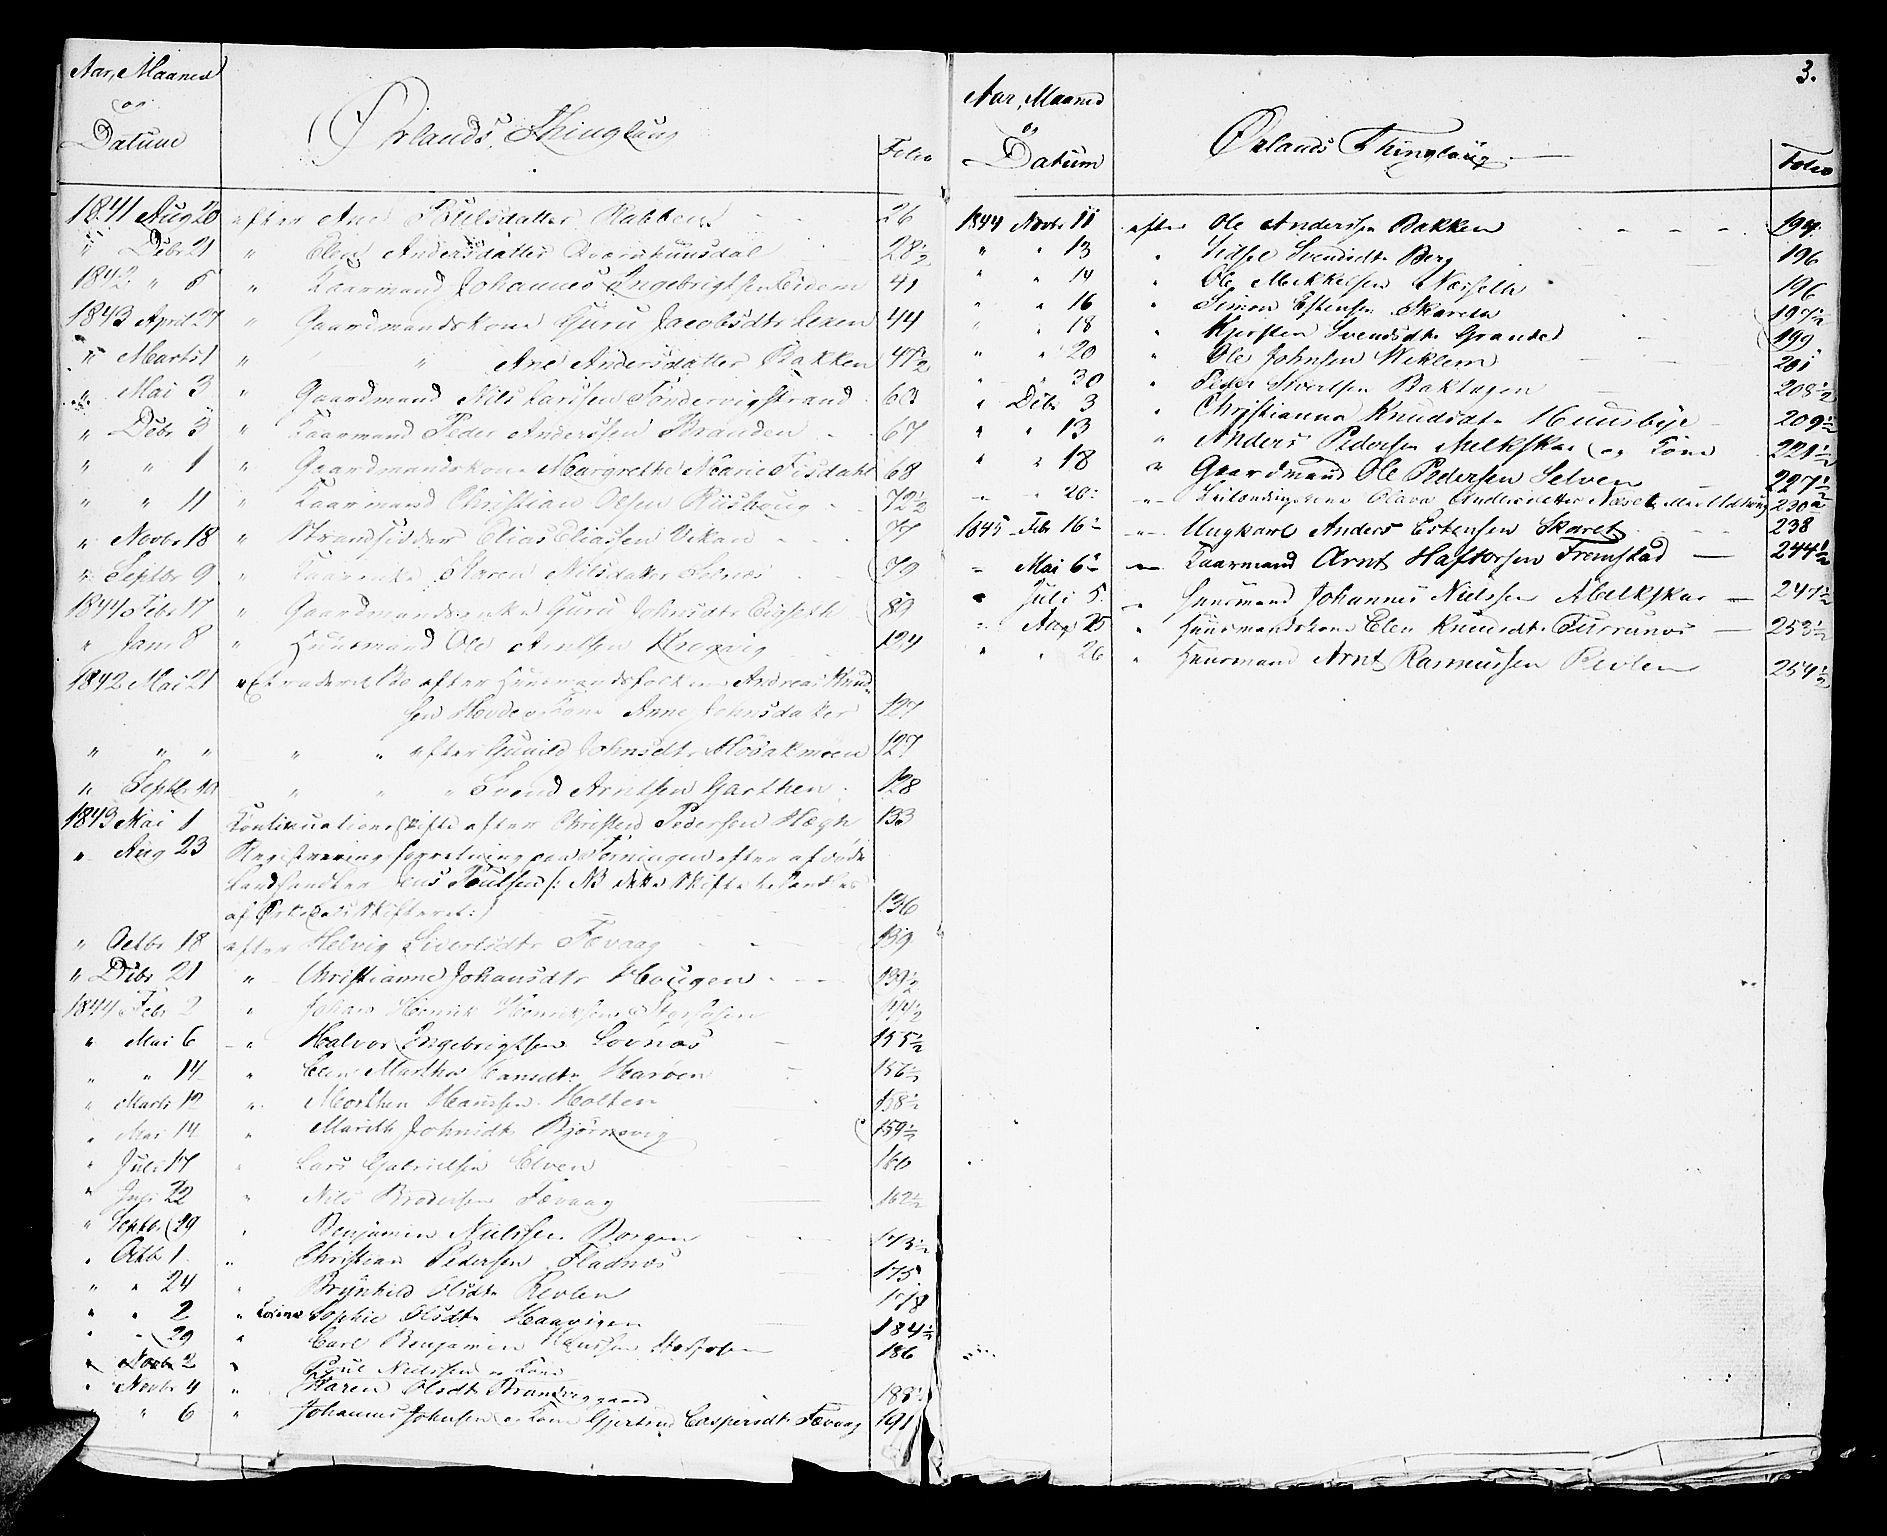 Aar, Maaned
og
Datum
Ørlands Thinglaug
Folio
1841 Aug 20 efter Ane Poulsdatter Bakken 26
" Debr 21 " Elen Andersdatter 28½
1842 " 5 " Kaarmand Johannes Engebrigtsen Eidem 41
1843 April 27 " Gaardmandskone Guru Jacobsdtr Lexen 44
" Marts 1 " " Ane Andersdatter Bakken 47½
" Mai 3 " Gaardmand Nils Larssen Søndervigstrand 63
" Debr 3 " Kaarmand Peder Anderssen Branden 67
" " 1 " Gaardmandskone Margrethe Marie Fisdahl 68
" " 11 " Kaarmand Christian Olsen Riishoug 72½
" Novbr 18 " Strandsidder Elias Eliassen Vikan 77
" Septbr 9 " Kaarenke Karen Nilsdatter 79
1844 Febr 17 " Gaardmandsenke Guru Johnsdtr 89
" Janr 8 " Huusmand Ole Arntsen Kregvig 124
1842 Mai 21 " efter Huusmandsfolkene Andreas Knud-
sen Hovde og Kone Anne Johnsdatter 127
" " " " " efter Gunild Johnsdtr 127
" Septbr 10 " " " Svend Arntsen Garthen 128
1843 Mai 1 Continuationsskifte efter Christen Pedersen Høgh 133
" Aug 23 Registreringsforretning paa Terningen efter afdøde
Landhandler Jens Poulsen /: NB dette Skifte behandles
af Ørkedals Skifteret :/ 136
" Octbr 18 efter Helvig Sivertsdtr Fevaag 139
" Debr 21 " Christianne Johansdtr Hougen 139½
1844 Febr 2 " Johan Henrik Henriksen Storfosen
" Mai 6 " Halvor Engebrigtsen Lovnæs 155½
" " 14 " Elen Martha Hansdtr Harven 156½
" Marts 12 " Morthen Hanssen Holten 158½
" Mai 14 " Marith Johnsdtr Bjørnevig 159½
" Juli 17 " Lars Gabrielsen Elven 160
" Juli 22 " Nils Brodersen Fevaag 162½
" Septbr 29 " Benjamin Nielssen Borgen 173½
" Octbr 1 " Christian Pedersen Fladnæs 175
" " 24 " Brynhild Olsdtr Revlen 178
" " 2 " Sophie Olsdtr Haavigen 184½
" " 29 " Carl Benjamin Hanssen Storfosen 186
" Novbr 2 " Poul Nielssen og Kone
" Novbr 4 " Karen Olsdtr 188½
" " 6 " Johannes Johnsen og Kone Gjertrud Caspersdtr Fevaag 191
3.
Aar, Maaned
og
Datum
Ørlands Thinglaug
Folio
1844 Novbr 11 efter Ole Anderssen Bakken 194
" " 13 " Sidsel Svendsdtr Berg 196
" " 14 " Ole Mikkelsen Næsseth 196
" " 16 " Simon Estensen Skareth 197½
" " 18 " Kjersten Svendsdtr Grandet 199
" " 20 " Ole Johnsen Viklem 201
" " 30 " Peder Baktagen 208½
" Debr 3 " Christianna Knudsdtr Huusbye 209½
" " 13 " Anders Pedersen Melkskar og Kone 221½
" " 18 " Gaardmand Ole Pedersen Selven 227½
" " 20 " Olava Andersdatter 230
1845 Febr 16 " Ungkarl Anders Estensen Skaret 238
" Mai 6 " Kaarmand Arnt Haftorsen Fremstad 244½
" Juli 5 " Huusmand Johannes Nielssen Melkskar 247½
" Aug 25 " Huusmandskone Elen Knudsdtr Furrunæs 253½
" " 26 " Huusmand Arnt Rasmussen Revlen 254½